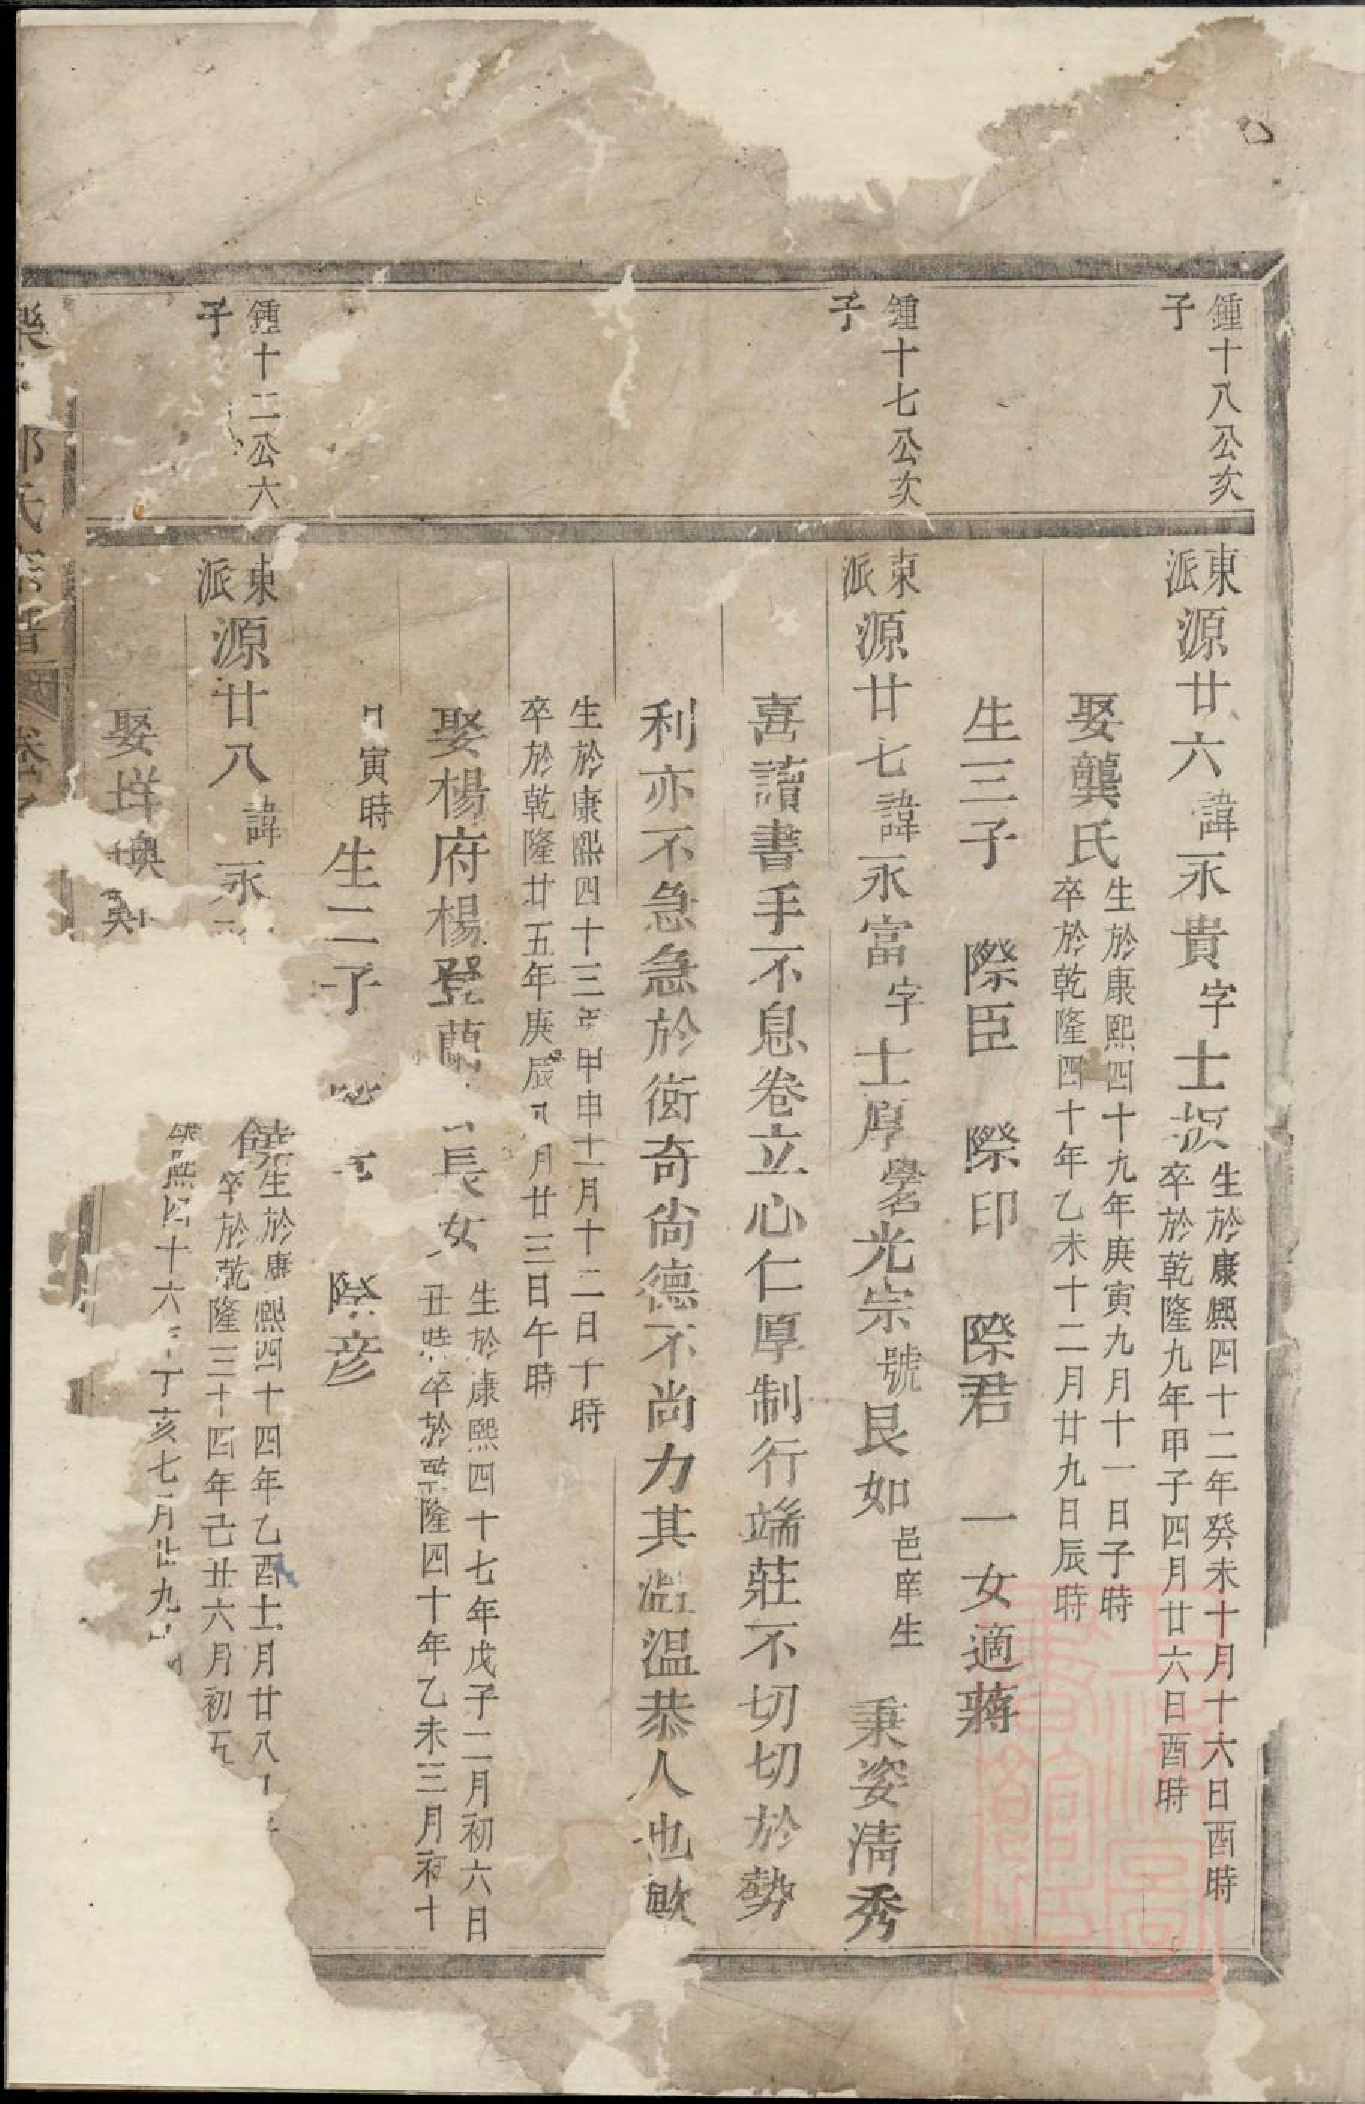 鍾十八公亥
子
東派源廿六諱永貴字士
生於康熙四十二年癸未十月十六日酉時
卒於乾隆九年甲子四月廿六日酉時
娶龔氏
生於康熙四十九年庚寅九月十一日子時
卒於乾隆四十年乙未十二月廿九日辰時
生三子 際臣 際印 際君 一女適蔣
鍾十七公次
子
東派源廿七諱永富字士厚學名光宗號艮如邑庠生 秉姿清秀
喜讀書手不息卷立心仁厚制行端莊不切切於勢
利亦不急急於衒奇尚德不尚力其溫溫恭人也歟
生於康熙四十三年甲申十一月十二日丁時
卒於乾隆廿五年庚辰 月廿三日午時
娶楊府楊登蘭 長女
生於康熙四十七年戊子二月初六日
丑時卒於乾隆四十年乙未三月初十
日寅時
生二子 際彦
鍾十二公六
子
東派源廿八諱永
生於康熙四十四年乙酉十一月廿八
卒於乾隆三十四年己丑六月初五
娶
熙四十六 丁亥七月廿九
氏